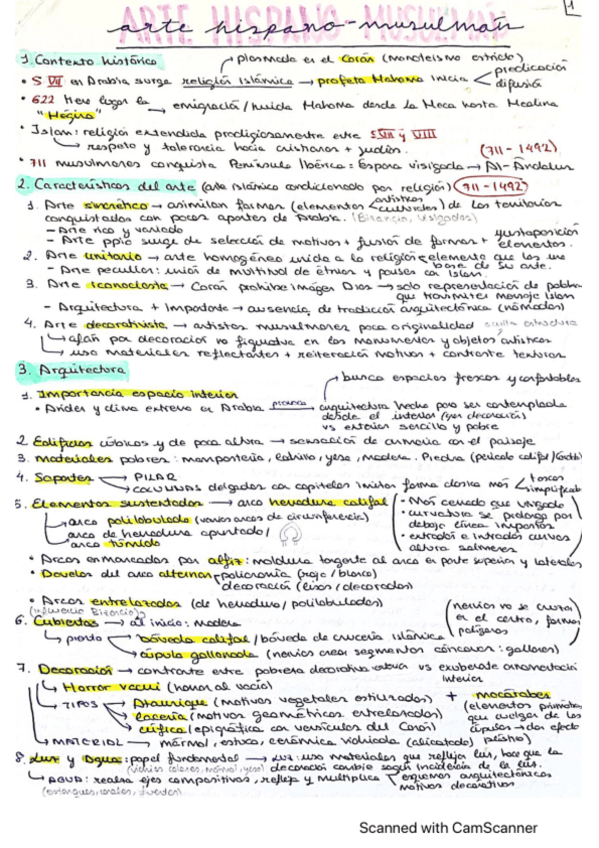 ARTE HISPANO-MUSULMÁN
arte hispano-musulmán
1
1. Contexto histórico → plasmada en el Corán (monoteísmo estricto)
• S VII en Arabia surge religión islámica → profeta Mahoma inicia < predicación
difusión
• 622 tiene lugar la → emigración/huida Mahoma desde la Meca hasta Medina
"Hégira"
• Islam: religión extendida prodigiosamente entre S VII y VIII
↳ respeto y tolerancia hacia cristianos + judíos. (711-1492)
• 711 musulmanes conquista Península Ibérica: España visigoda → Al-Andalus
2. Características del arte (arte islámico condicionado por religión) (711-1492)
1. Arte sincrético → asimilan formas (elementos < artísticos
culturales) de los territorios
conquistados con pocos aportes de Arabia. (Bizancio, Visigodos)
- Arte rico y variado
- Arte ppio surge de selección de motivos + fusión de formas + yuxtaposición
elementos.
2. Arte unitario → arte homogéneo unido a la religión → elemento que los une
base de su arte.
- Arte peculiar: unión de multitud de etnias y países con Islam.
3. Arte iconoclasta → Corán prohíbe imágen Dios → solo representación de palabra
que transmite mensaje Islam
- Arquitectura + importante → ausencia de tradición arquitectónica (nómadas)
4. Arte decorativista → artistas musulmanes poca originalidad
↳ afán por decoración no figurativa en los monumentos y objetos artísticos
↳ uso materiales reflectantes + reiteración motivos + contraste texturas
3. Arquitectura
→ busca espacios frescos y confortables
1. Importancia espacio interior
• Aridez y clima extremo en Arabia → arquitectura hecha para ser contemplada
desde el interior (gran decoración)
vs exterior sencillo y pobre
2. Edificios cúbicos y de poca altura → sensación de armonía con el paisaje
3. materiales pobres: mampostería, ladrillo, yeso, madera. Piedra
4. Soportes → PILAR
→ COLUMNAS delgadas con capiteles imitan forma clásica más < toscos
5. Elementos sustentados → arco herradura califal
• Más cerrado que visigodo
• curvatura se prolonga por
debajo línea impostas
• extradós e intradós curvas
altura salmeres
↳ arco polilobulado (varios arcos de circunferencia)
↳ arco de herradura apuntado /
arco túmido
• Arcos enmarcados por alfiz: moldura tangente al arco en parte superior y laterales
• Dovelas del arco alternan → policromía (rojo/blanco)
decoración (lisos/decorados)
• Arcos entrelazados (de herradura/polilobulados)
(influencia Bizancio)
(nervios no se cruzan
en el centro, forman
polígonos)
6. Cubiertas → al inicio: madera
↳ pronto → bóveda califal / bóveda de crucería islámica
→ cúpula gallonada (nervios crean segmentos cóncavos: gallones)
7. Decoración → contraste entre pobreza decorativa exterior vs exuberante ornamentación
interior
↳ Horror vacui (horror al vacío)
↳ TIPOS → Ataurique (motivos vegetales estilizados) + mocárabes
→ lacería (motivos geométricos entrelazados)
→ cúfica (epigráfica con versículos del Corán)
(elementos
que cuelgan de las
cúpulas → dan efecto
↳ MATERIAL → mármol, estuco, cerámica vidriada (alicatados)
8. Luz y Agua: papel fundamental → LUZ: uso materiales que reflejan luz, hace que la
decoración cambie según incidencia de la luz.
↳ AGUA: realza ejes compositivos, refleja y multiplica < esquemas arquitectónicos
motivos decorativos
(estanques, canales, fuentes)
Scanned with CamScanner